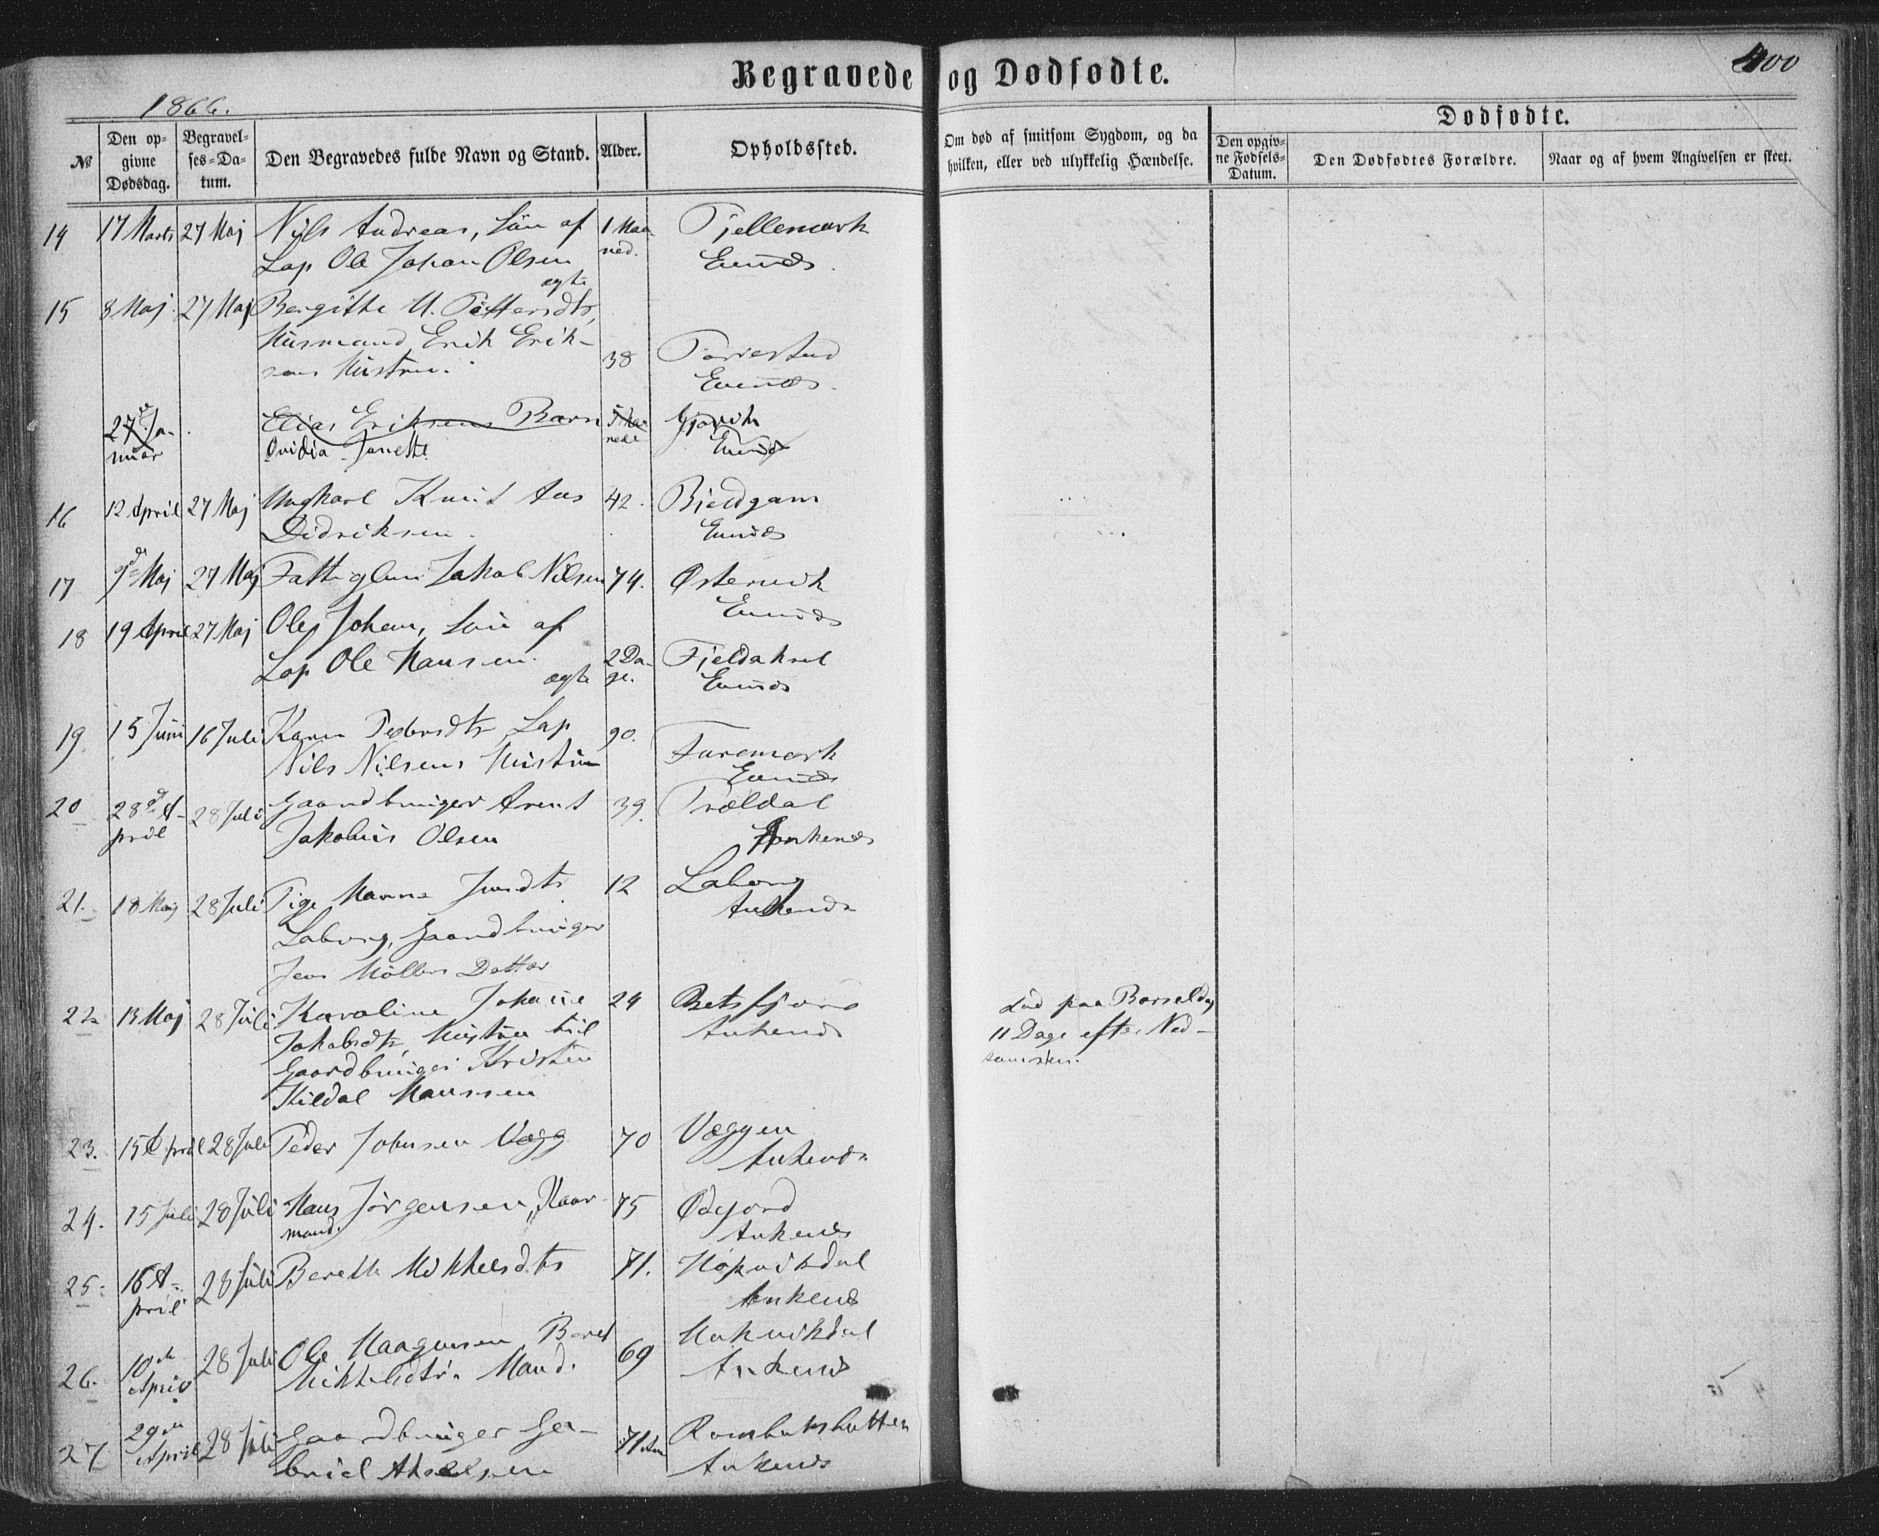 Begravede og Dødfødte.
400
1866.
Dødfødte.
№
Den op-
givne
Dødsdag.
Begravel-
ses-Da-
tum.
Den Begravedes fulde Navn og Stand.
Alder.
Opholdssted.
Om død af smitsom Sygdom, og da
hvilken, eller ved ulykkelig Hændelse.
Den opgiv-
ne Fødsels-
Datum.
Den Dødfødtes Forældre.
Naar og af hvem Angivelsen er skeet.
14 17 Marts 27 Maj Nils Andreas, Søn af 1 Maa- Fjellemark
Lap Ole Johan Olsen ned. Evenæs.
ægte
15 8 Maj 27 Maj Bergitte M. Pettersdtr,
Husmand Erik Erik- 38
sens Hustru. Evenæs.
27de Ja- Elias Eriksens Barn
nuar Ovidia Janette Evenæs
16 12 April 27 Maj Ungkarl Knut Aas 42. Bjeldgam
Didriksen. Evenæs
17 9de Maj 27 Maj Fattiglem Jakob Nilsen 74. Østervik
Evenæs
18 19 April 27 Maj Ole Johan, Søn af
Lap Ole Hansen. 2 Da- Fjeldaksel
ægte ge. Evenæs
19. 15 Juni 16 Juli Karen Pedersdtr, Lap 90.
Nils Nilsens Hustru
Evenæs
20 28de A- 28 Juli Gaardbruger Arent 39. Trældal
pril Jakobus Olsen Ankenæs
21. 18 Maj 28 Juli Pige Hanna Jensdtr 12 Laberg
Ankenæs
Laberg, Gaardbruger
Jens Møllers Datter
22 13 Maj 28 Juli Karoline Johanne 24
Jakobsdtr, Hustru til Ankenæs
Gaardbruger Kristen
Kildal Hanssen
død paa Barselseng
11 Dage efter Ned-
komsten.
23. 15 April 28 Juli Peder Johnsen Vægg 70 Væggen
Ankenæs
24. 15 Juli 28 Juli Hans Jørgensen, Kaar- 75 Ødejord
mand. Ankenæs
25. 16 A- 28 Juli Berette Mikkelsdtr 71. Hopvikdal
pril Ankenæs
26. 10de 28 Juli Ole Haagensen, Beret 69
April Mikkelsdtr's Mand. Ankenæs
27 29de 28 Juli Gaardbruger Ga- 71 Rombaksbotten
April briel Akselsen Ankenæs